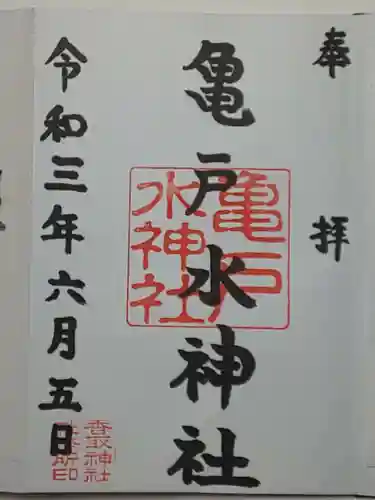 奉拝
亀戸水神社
亀戸
水神社
令和三年六月五日
香取神社